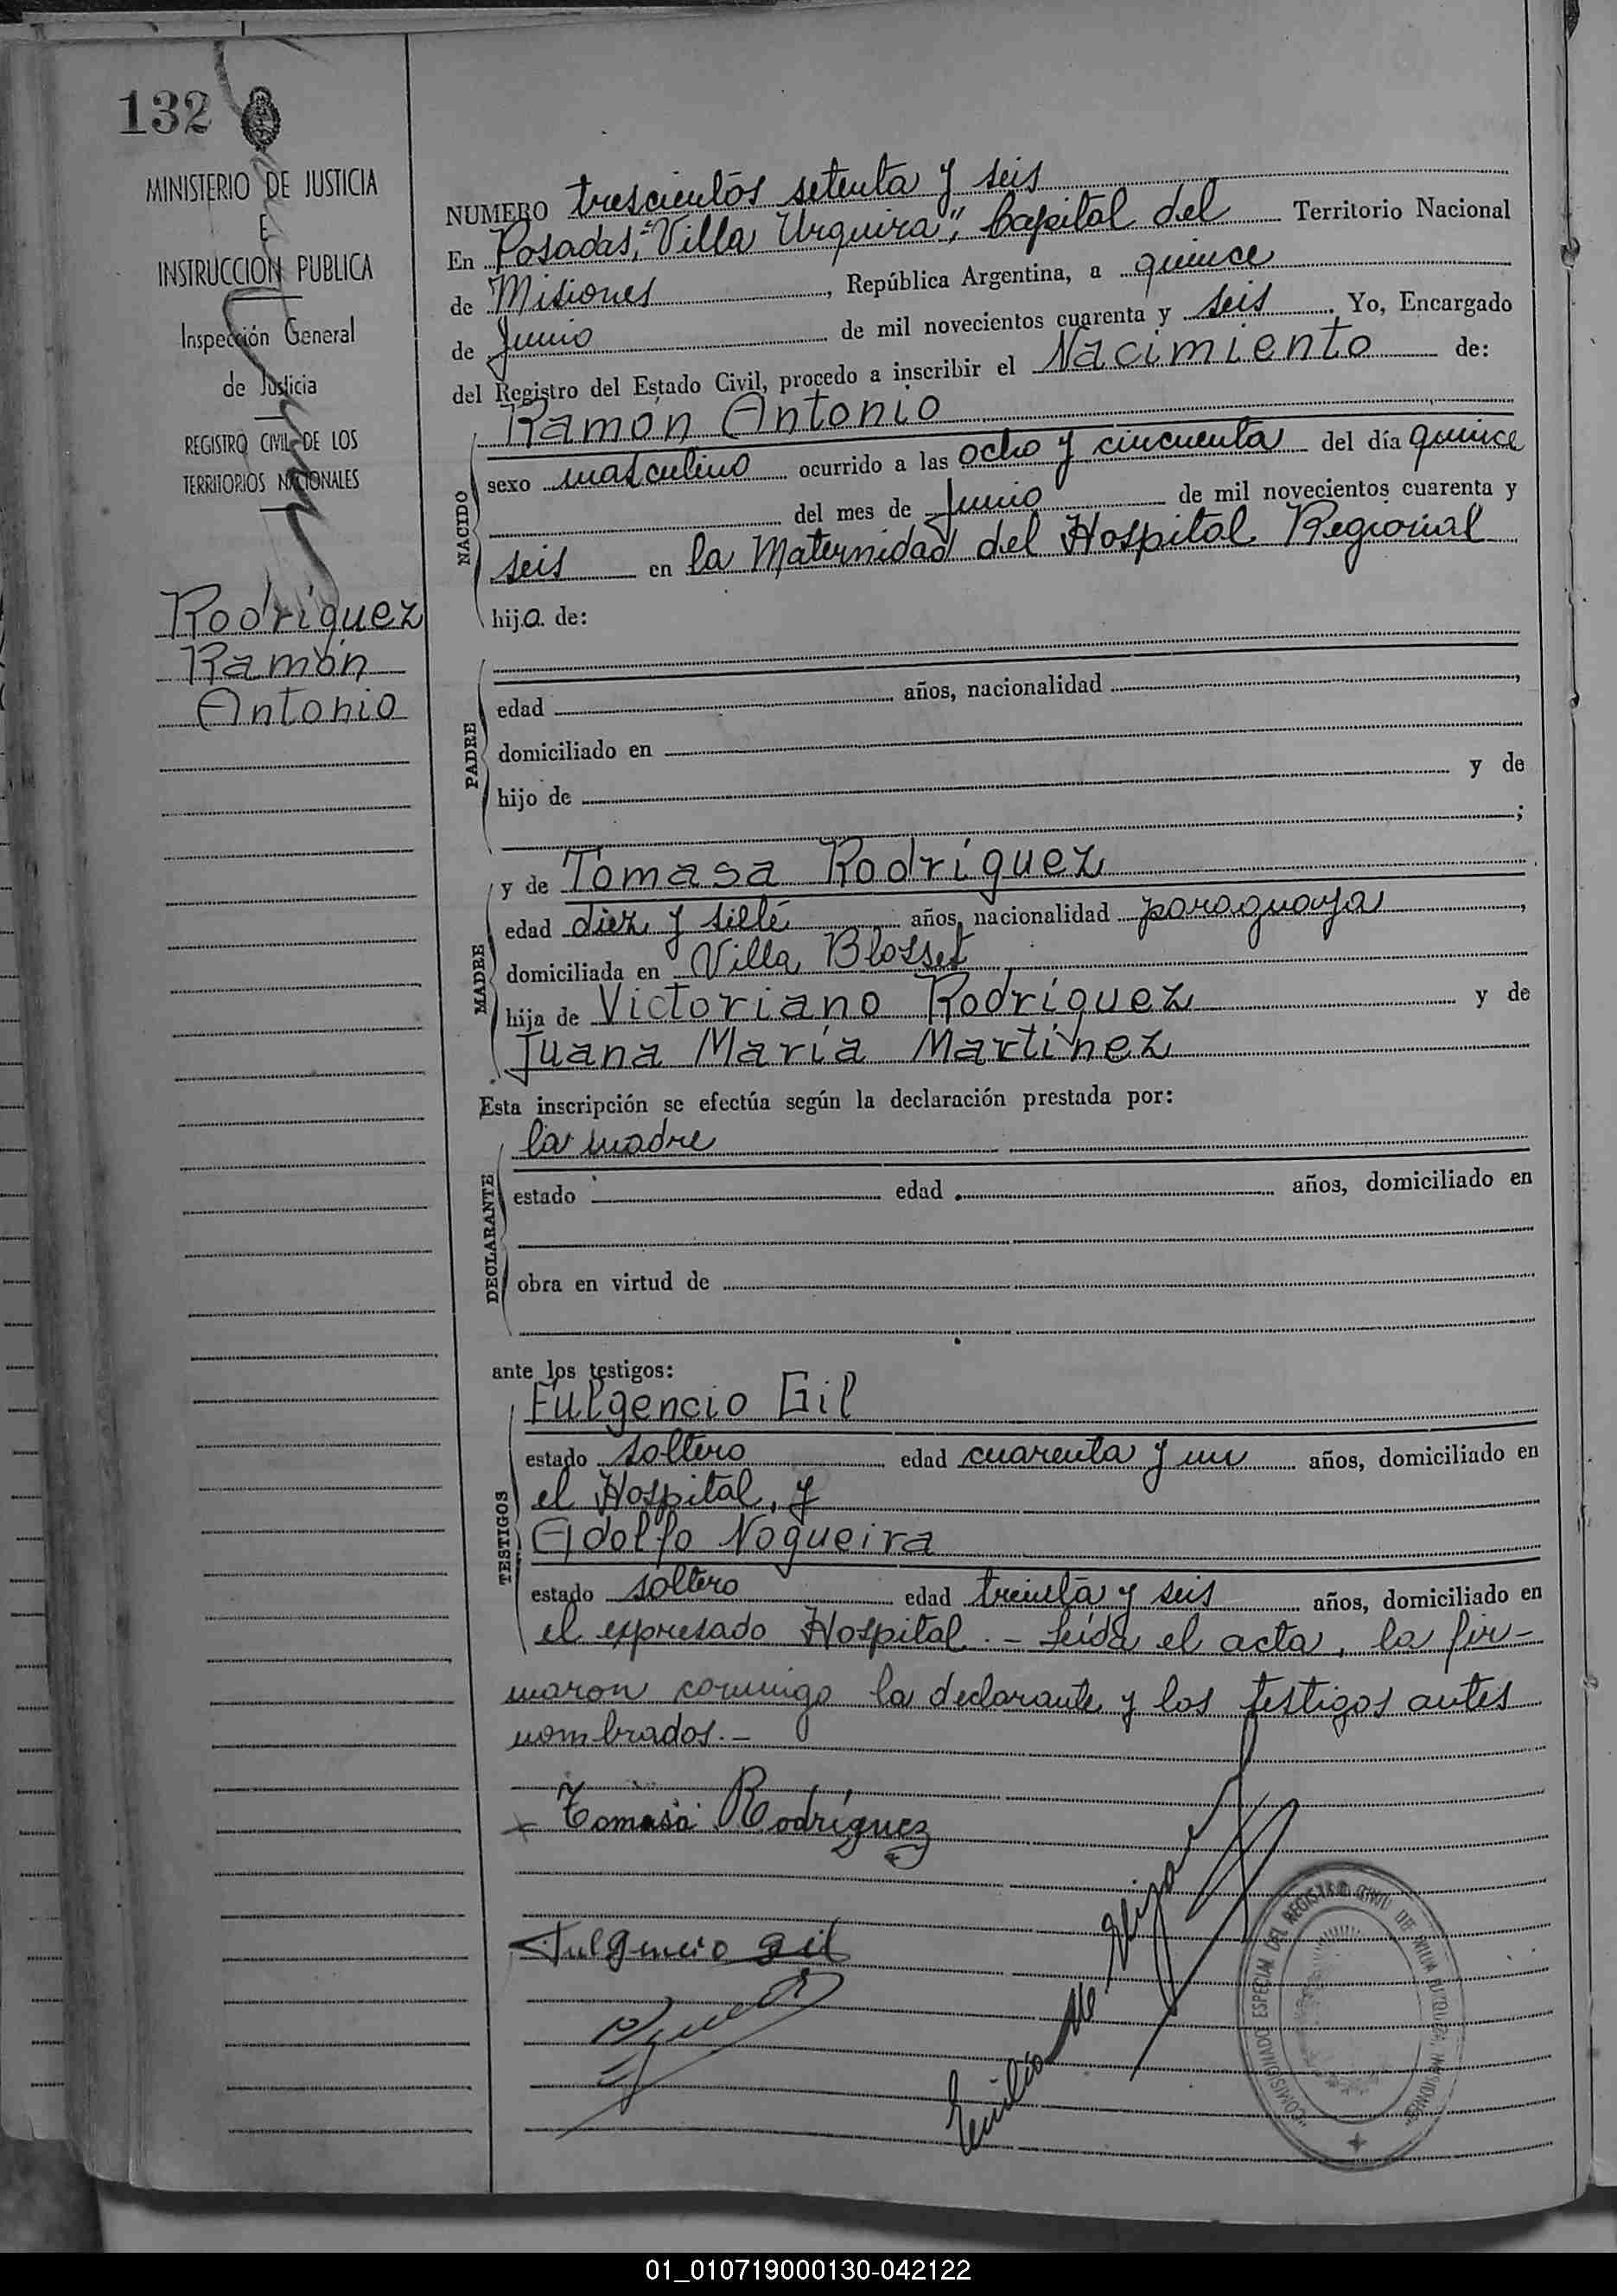 132
MINISTERIO DE JUSTICIA
E
INSTRUCCION PUBLICA
Inspección General
de Justicia
REGISTRO CIVIL DE LOS
TERRITORIOS NACIONALES
Rodríguez
Ramón
Antonio
NUMERO trescientos setenta y seis
En Posadas, "Villa Urquiza", Capital del Territorio Nacional
de Misiones, República Argentina, a quince
de Junio de mil novecientos cuarenta y seis. Yo, Encargado
del Registro del Estado Civil, procedo a inscribir el Nacimiento de:
NACIDO
Ramón Antonio
sexo masculino ocurrido a las ocho y cincuenta del día quince
del mes de Junio de mil novecientos cuarenta y
seis en la Maternidad del Hospital Regional
hijo de:
PADRE
edad años, nacionalidad ,
domiciliado en
hijo de y de
;
MADRE
y de Tomasa Rodríguez
edad diez y siete años, nacionalidad paraguaya ,
domiciliada en Villa Blosset
hija de Victoriano Rodríguez y de
Juana María Martínez
Esta inscripción se efectúa según la declaración prestada por:
DECLARANTE
la madre
estado edad años, domiciliado en
obra en virtud de
ante los testigos:
TESTIGOS
Fulgencio Gil
estado soltero edad cuarenta y un años, domiciliado en
el Hospital, y
Adolfo Nogueira
estado soltero edad treinta y seis años, domiciliado en
el expresado Hospital.- Leída el acta, la fir-
maron conmigo la declarante y los testigos antes
nombrados.-
Tomasa Rodríguez
Fulgencio Gil
Emilio
COMISIONADO ESPECIAL DEL REGISTRO CIVIL DE VILLA URQUIZA, MISIONES
01_010719000130-042122